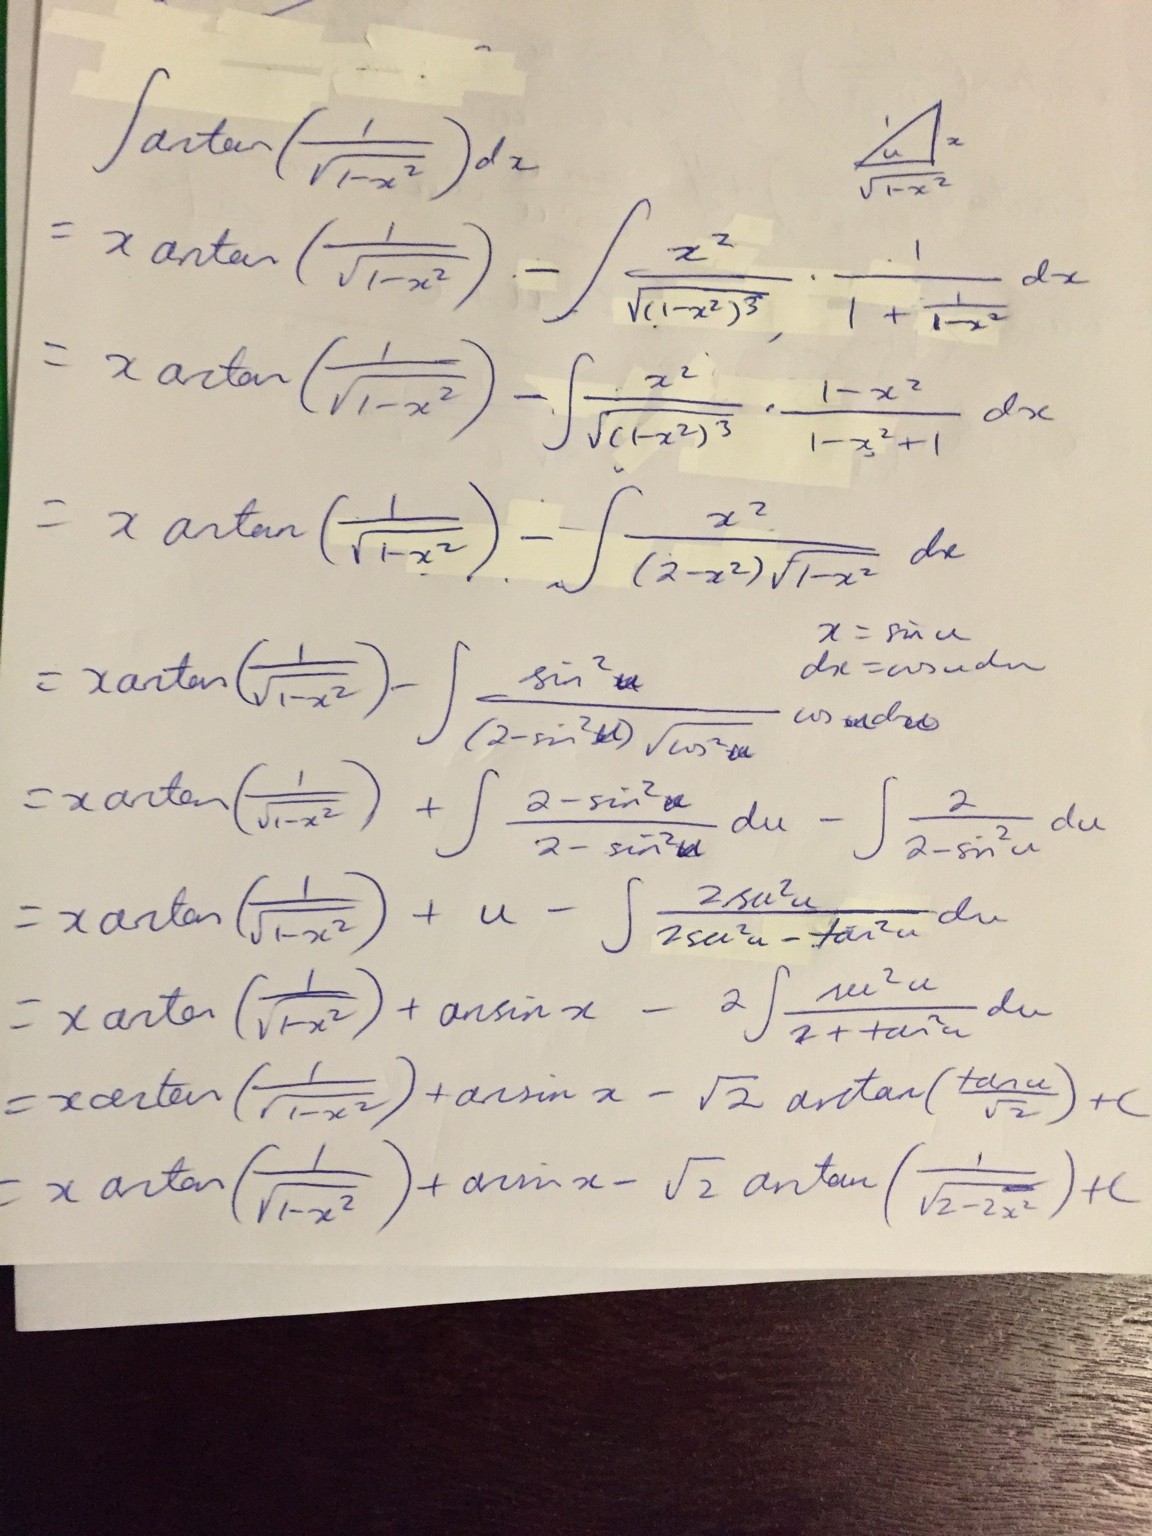 ∫ arctan(1/√(1-x²)) dx
1
u
x
√(1-x²)
= x arctan(1/√(1-x²)) - ∫ x²/√((1-x²)³) · 1/(1 + 1/(1-x²)) dx
= x arctan(1/√(1-x²)) - ∫ x²/√((1-x²)³) · (1-x²)/(1-x²+1) dx
= x arctan(1/√(1-x²)) - ∫ x²/((2-x²)√(1-x²)) dx
x = sin u
dx = cos u du
= x arctan(1/√(1-x²)) - ∫ sin²u/((2-sin²u)√(cos²u)) cos u du
= x arctan(1/√(1-x²)) + ∫ (2-sin²u)/(2-sin²u) du - ∫ 2/(2-sin²u) du
= x arctan(1/√(1-x²)) + u - ∫ 2sec²u/(2sec²u - tan²u) du
= x arctan(1/√(1-x²)) + arcsin x - 2∫ sec²u/(2 + tan²u) du
= x arctan(1/√(1-x²)) + arcsin x - √2 arctan(tan u/√2) + C
= x arctan(1/√(1-x²)) + arcsin x - √2 arctan(1/√(2-2x²)) + C